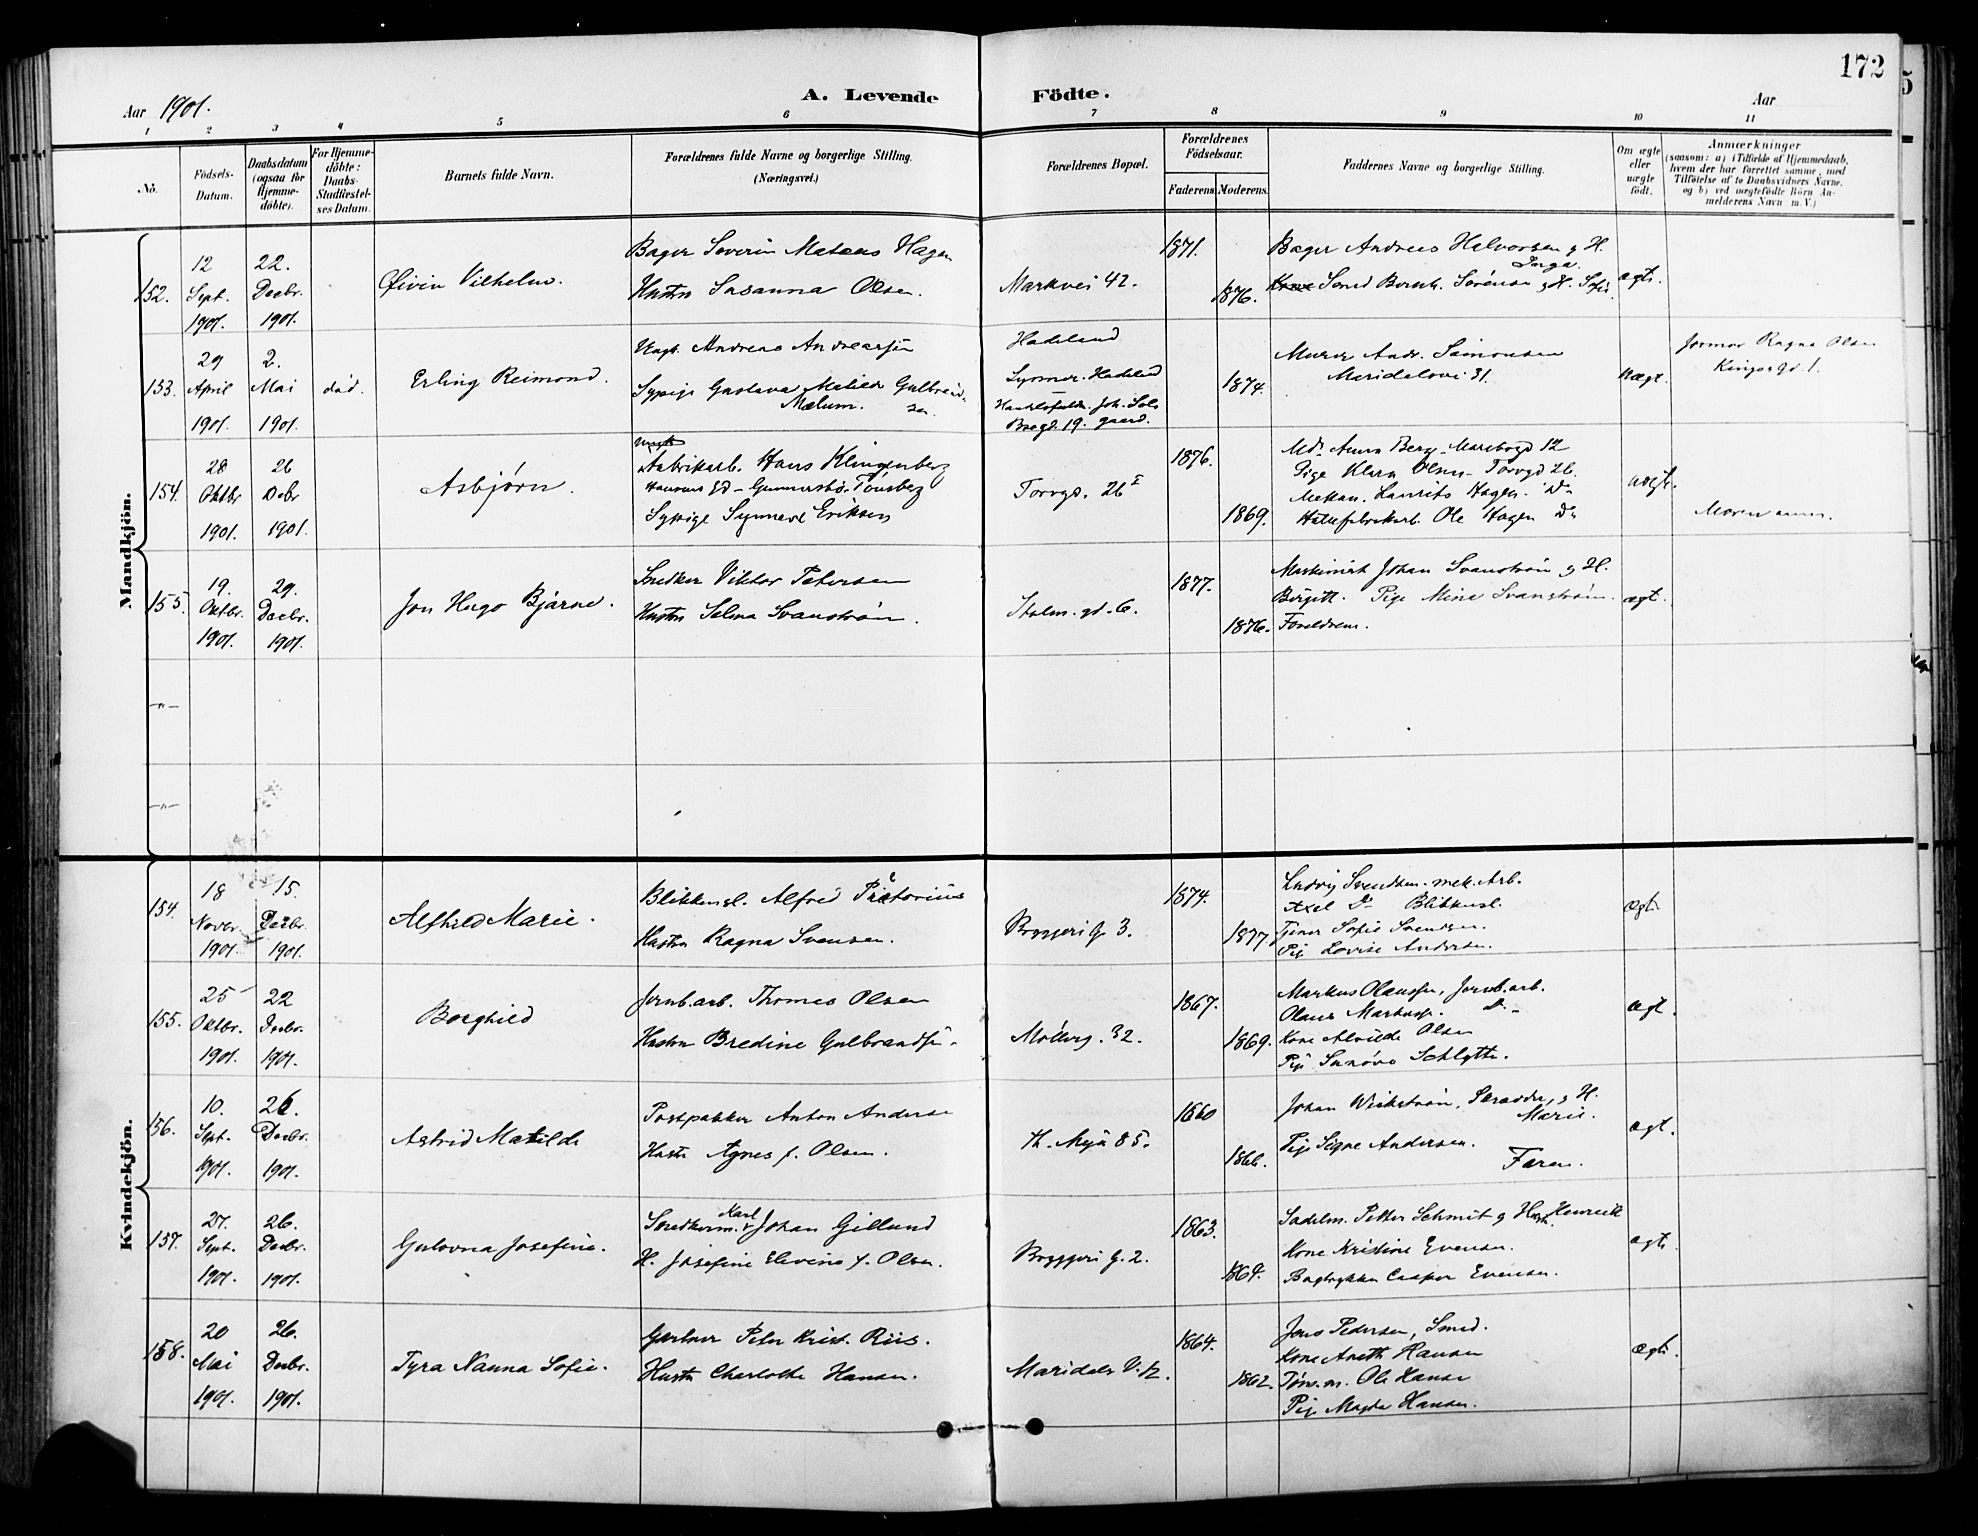 172
Aar 1901.
A. Levende Födte.
Aar
1 2 3 4 5 6 7 8 9 10 11
No.
Födsels-Datum.
Daabsdatum (ogsaa for Hjemmedöbte).
For Hjemmedöbte: Daabs-Stadfæstelses Datum.
Barnets fulde Navn.
Forældrenes fulde Navne og borgerlige Stilling. (Næringsvei.)
Forældrenes Bopæl.
Forældrenes Födselsaar.
Faderens. Moderens.
Faddernes Navne og borgerlige Stilling.
Om ægte eller uægte födt.
Anmærkninger
(saasom: a) i Tilfælde af Hjemmedaab, hvem der har forrettet samme, med Tilföielse af to Daabsvidners Navne, og b) ved uægtefödte Börn Anmelderens Navn m.V.)
Mandkjön.
152.
12 Sept. 1901.
22. Decbr. 1901.
Øivin Vilhelm.
Bager Severin Mateus Hagen
Hustru Susanna Olsen.
Markvei 42.
1871.
1876.
Bager Andreas Halvorsen g H. Inga.
Smed Bernh. Sørensen g H. Sofie
ægte.
153.
29 April 1901.
2. Mai 1901.
død.
Erling Reimond.
Ungk. Andreas Andreassen
Sypige Gustava Matilde Gulbrandsen Mælum.
Hadeland
Hadeland
19. gaard.
1874.
Murer Andr. Simonsen
Maridalsvei 31.
Uægt.
Jormor Ragna Olsen
Kingosgd. 1.
154.
28 Oktbr 1901.
26 Debr 1901.
Asbjørn.
Ungk.
Fabrikarb. Hans Klingenberg
Hansens Gd - Gunnarsbø. Tønsberg
Sypige Synnøve Eriksen
Torvgd. 26 I
1876.
1869.
Md. Anna Berg - Maribogd 12
Pige Klara Olsen - Torvgd 26.
Mekan. Laurits Hagen. Do
Hattefabrikarb. Ole Hagen Do
uægte.
Moren anm.
155.
19. Oktbr. 1901.
29. Decbr. 1901.
Jon Hugo Bjarne.
Snedker Viktor Petersen
Hustru Selma Svanstrøm.
Holm. gd. 6.
1877.
1876.
Maskinist Johan Svanstrøm g H.
Birgitt. Pige Mina Svanstrøm.
Foreldrene.
ægt.
—"—
—"—
Kvindekjön.
154.
18 Novbr. 1901.
15. Decbr. 1901.
Alfhild Marie.
Blikkensl. Alfred Pretorius
Hustru Ragna Svensen.
Bryggeri G. 3.
1874.
1877.
Ludvig Svendsen. mek. Arb.
Axel Do Blikkensl.
Tjener Sofie Svendsen.
Pig Lovise Andersen.
Ægt.
155.
25 Oktbr. 1901.
22 Decbr. 1901.
Borghild
Jernb.arb. Thomas Olsen
Hustru Bredine Gulbrandsen.
Møllerg. 32.
1867.
1869.
Markus Olaussen, Jernb.arb.
Olaus Markuss. Do
Kone Alvilde Olsen
Pige Sunøva Schlytte.
Ægt.
156.
10. Sept. 1901.
26. Decbr. 1901.
Astrid Matilde
Postpakker Anton Andersen
Hustr Agnes f. Olsen.
Th. Meyer 85.
1860
1866.
Johan Wickstrøm, Skrædder, g H. Marie.
Pige Signe Andersen.
Faren.
ægt.
157.
27. Sept. 1901.
26. Decbr. 1901.
Gulovna Josefine.
Snedkerm. Karl Johan Gillund
H. Josefine Elevine f. Olsen.
Bryggeri G. 2.
1863.
1864.
Sadelm. Petter Schmit g Hust. Henrik
Kone Kristine Evensen.
Bogtrykker Casper Evensen.
ægte
158.
20 Mai 1901.
26. Decbr. 1901.
Tyra Nanna Sofie.
Gartner Peter Krist. Riis.
Hustr Charlotte Hansen.
Maridals V. 12.
1864.
1862.
Jens Pedersen, Smed.
Kone Aneth Hansen
Tøm.m. Ole Hansen
Pige Magda Hansen.
Ægte.